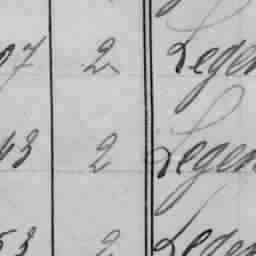 07 2 Legen
43 2 Legen
53 2 Legen